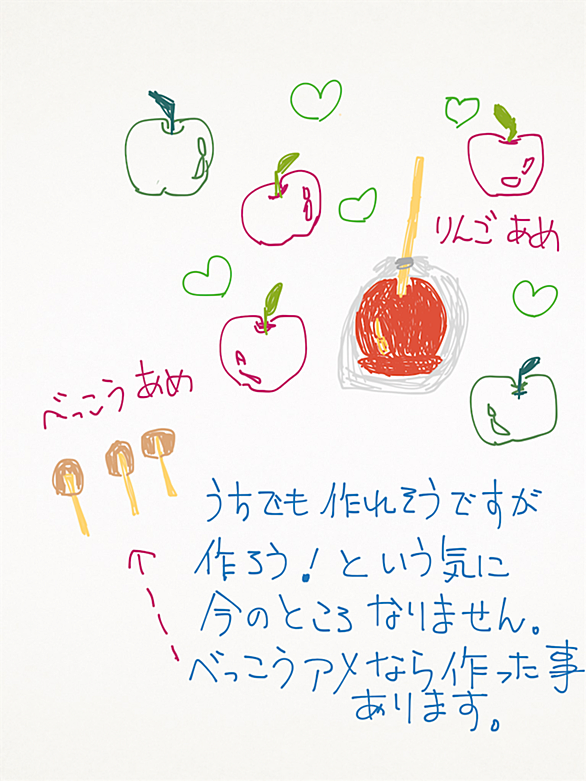 りんごあめ
べっこうあめ
うちでも作れそうですが
作ろう!という気に
今のところなりません。
べっこうアメなら作った事
あります。